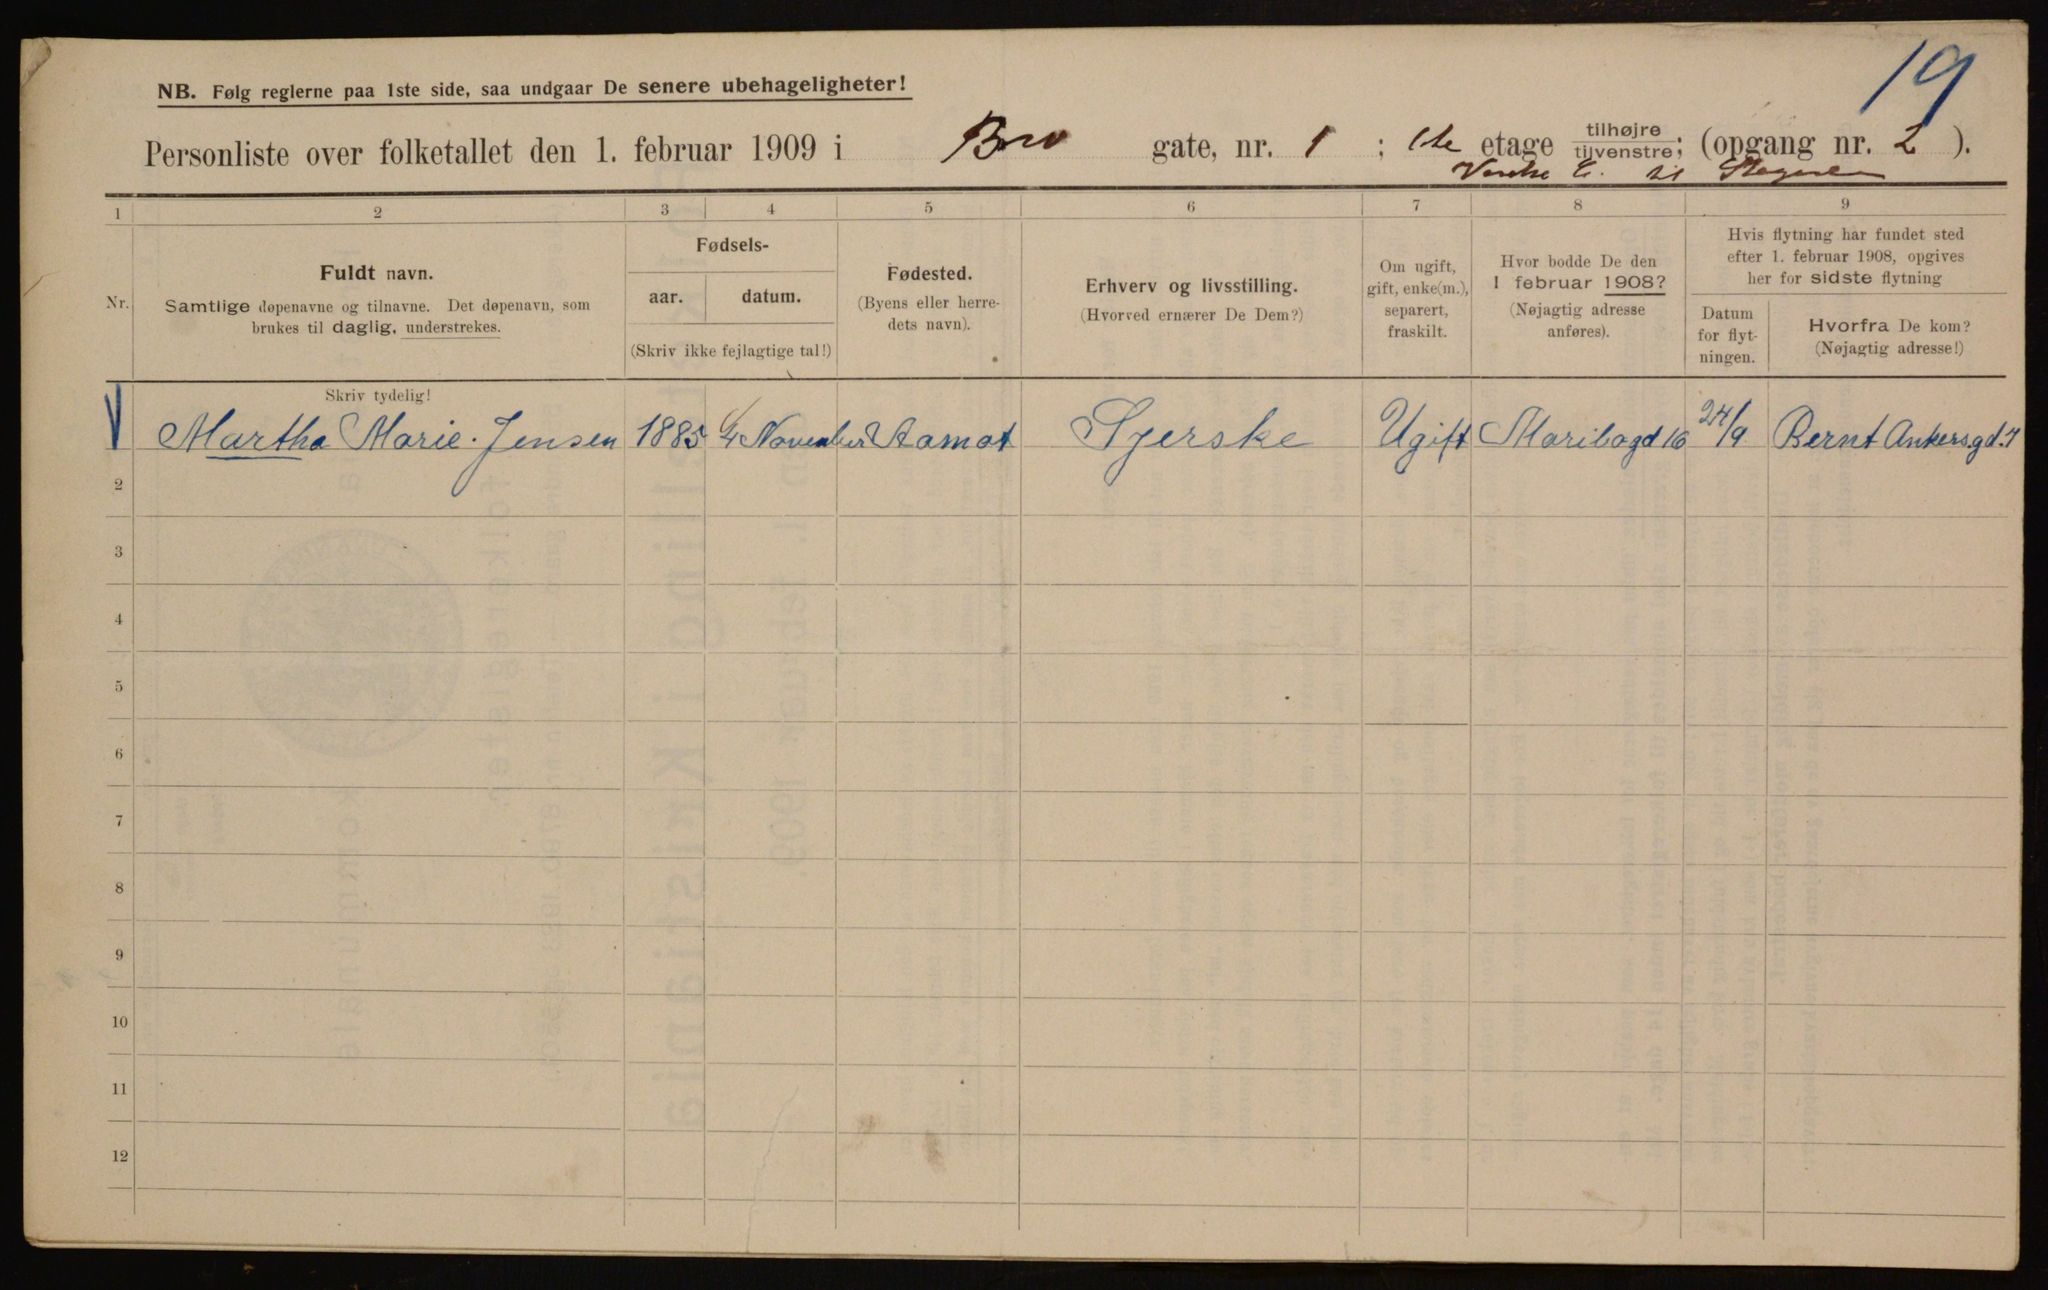 19
NB. Følg reglerne paa 1ste side, saa undgaar De senere ubehageligheter!
Personliste over folketallet den 1. februar 1909 i Bro gate, nr. 1 ; 1te etage tilhøjre tilvenstre; (opgang nr. 2 ).
1 2 3 4 5 6 7 8 9
Nr.
Fuldt navn.
Samtlige døpenavne og tilnavne. Det døpenavn, som
brukes til daglig, understrekes.
Fødsels-
aar. datum.
(Skriv ikke fejlagtige tal!)
Fødested.
(Byens eller herre-
dets navn).
Erhverv og livsstilling.
(Hvorved ernærer De Dem?)
Om ugift,
gift, enke(m.),
separert,
fraskilt.
Hvor bodde De den
1 februar 1908?
(Nøjagtig adresse
anføres).
Hvis flytning har fundet sted
efter 1. februar 1908, opgives
her for sidste flytning
Datum
for flyt-
ningen.
Hvorfra De kom?
(Nøjagtig adresse!)
Skriv tydelig!
Martha Marie Jensen 1885 4 November Aamot Syerske Ugift Maribogd 16 24/9 Bernt Ankersgd. 7
2
3
4
5
6
7
8
9
10
11
12